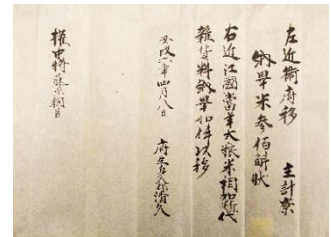 左近衛府移 主計寮
納畢米参佰斛状
右近江國當年大粮米相加糙代
雑貨料納畢如件以移
安政六年四月八日 府生
権中将藤原朝臣